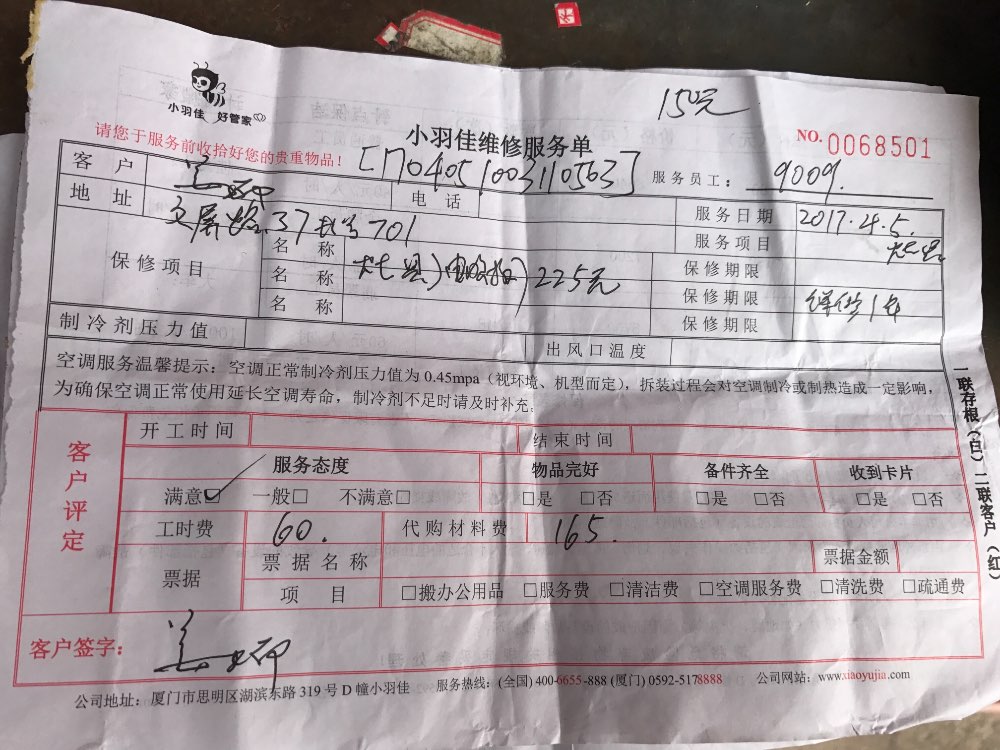 小羽佳 好管家
150元
小羽佳维修服务单
NO.0068501
请您于服务前收拾好您的贵重物品！
[1704051003110563]
服务员工： 9009.
客户
电话
服务日期 2017.4.5.
地址 文屏路37号701
服务项目
保修项目
名称 225元
保修期限
名称
保修期限 1年
名称
保修期限
制冷剂压力值
出风口温度
空调服务温馨提示：空调正常制冷剂压力值为 0.45mpa（视环境、机型而定），拆装过程会对空调制冷或制热造成一定影响，
为确保空调正常使用延长空调寿命，制冷剂不足时请及时补充。
客户评定
开工时间
结束时间
服务态度 物品完好 备件齐全 收到卡片
满意☑ 一般□ 不满意□ □是 □否 □是 □否 □是 □否
工时费 60. 代购材料费 165.
票据
票据名称
票据金额
项目 □搬办公用品 □服务费 □清洁费 □空调服务费 □清洗费 □疏通费
客户签字：
公司地址：厦门市思明区湖滨东路 319 号 D 幢小羽佳 服务热线：(全国) 400-6655-888 (厦门) 0592-5178888 公司网站：www.xiaoyujia.com
一联存根（白）二联客户（红）